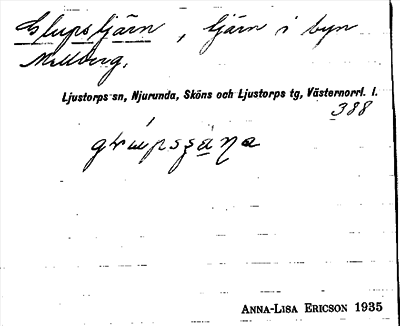 Glupstjärn, tjärn i byn
Mellberg.
Ljustorps sn, Njurunda, Sköns och Ljustorps tg, Västernorrl. l.
388
ANNA-LISA ERICSON 1935